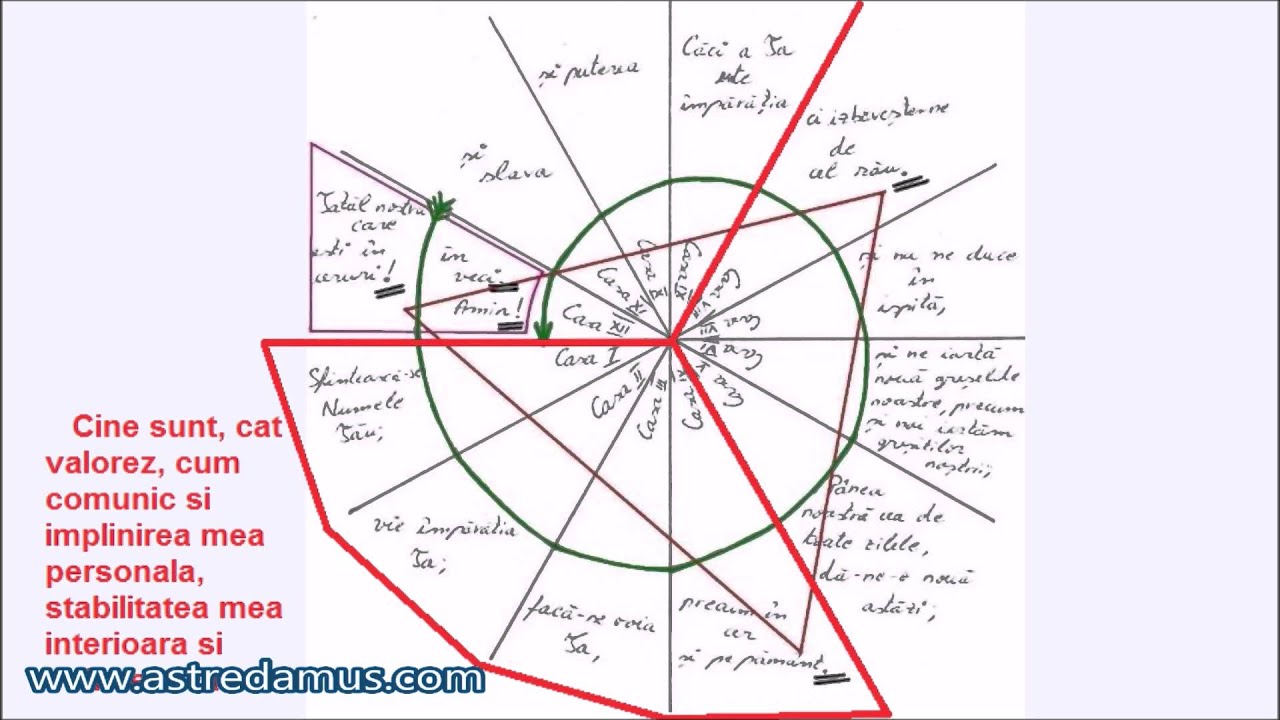 Căci a Ta
este
împărăția
și puterea
și
slava
ci izbăvește-ne
de
cel rău.
Tatăl nostru
care
ești în
ceruri!
în
veci.
Amin!
și nu ne duce
în
ispită,
Casa XII
Casa XI
Casa X
Casa IX
Casa VIII
Casa VII
Casa VI
Casa V
Casa IV
Casa III
Casa II
Casa I
Sfințească-se
Numele
Tău;
și ne iartă
nouă greșelile
noastre, precum
și noi iertăm
greșiților
noștri;
vie împărăția
Ta;
Pânea
noastră cea de
toate zilele,
dă-ne-o nouă
astăzi;
facă-se voia
Ta,
precum în
cer
și pe pământ.
Cine sunt, cat
valorez, cum
comunic si
implinirea mea
personala,
stabilitatea mea
interioara si
www.astredamus.com